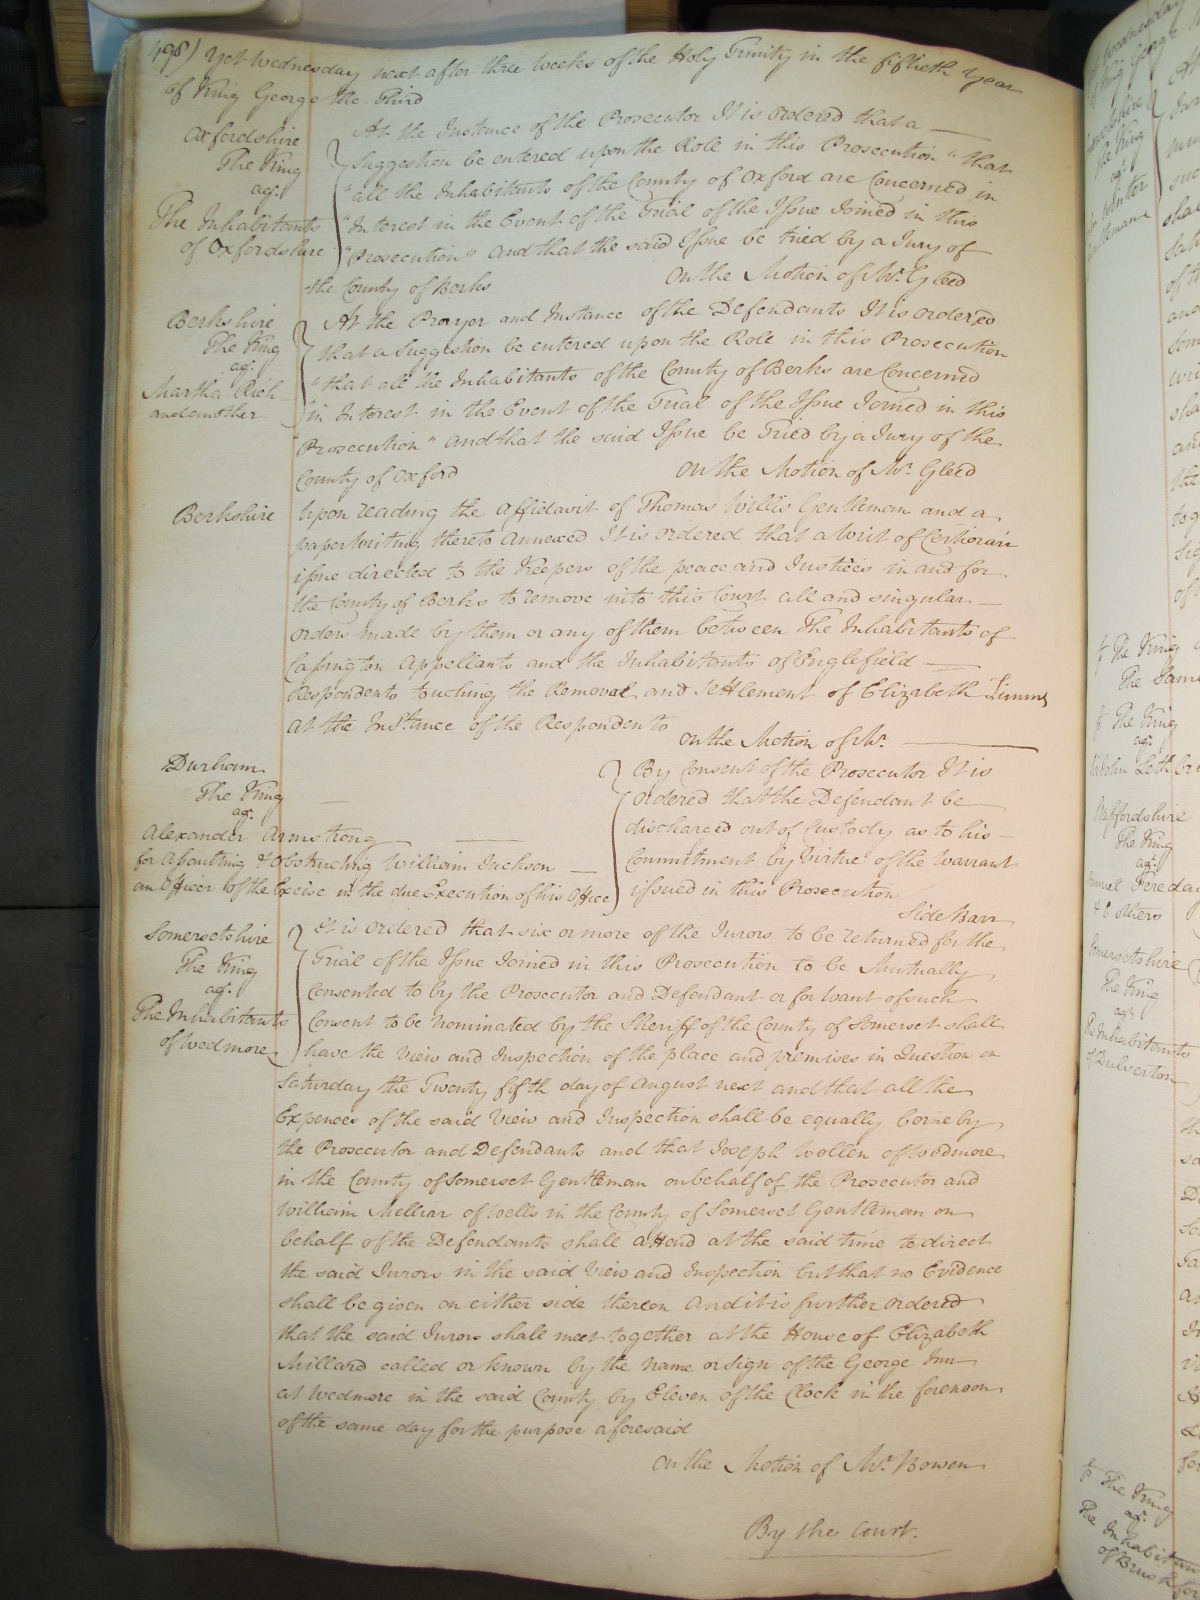 498) Yet Wednesday next after three Weeks of the Holy Trinity in the fiftieth Year
of King George the Third
Oxfordshire
The King
agt.
The Inhabitants
of Oxfordshire
At the Instance of the Prosecutor It is ordered that a
Suggestion be entered upon the Role in this Prosecution "that
"all the Inhabitants of the County of Oxford are Concerned in
"Interest in the Event of the Trial of the Issue Joined in this
"Prosecution" And that the said Issue be tried by a Jury of
the County of Berks
On the Motion of Mr. Gleed
Berkshire
The King
agt.
Martha Rich
and another
At the Prayer and Instance of the Defendants It is ordered
that a Suggestion be entered upon the Role in this Prosecution
"that all the Inhabitants of the County of Berks are Concerned
"in Interest in the Event of the Trial of the Issue Joined in this
"Prosecution" And that the said Issue be Tried by a Jury of the
County of Oxford
On the Motion of Mr. Gleed
Berkshire
Upon reading the Affidavit of Thomas Willis Gentleman and a
paper Writing thereto Annexed It is ordered that a Writ of Certiorari
issue directed to the Keepers of the peace and Justices in and for
the County of Berks to remove into this Court all and singular
orders made by them or any of them between The Inhabitants of
Cassington Appellants and the Inhabitants of Englefield
Respondents touching the Removal and Settlement of Elizabeth Timms
at the Instance of the Respondents
On the Motion of Mr.
Durham
The King
agt.
Alexander Armstrong
for Assaulting & Obstructing William Jackson
an Officer of the Excise in the due Execution of his Office
By Consent of the Prosecutor It is
ordered that the Defendant be
discharged out of Custody as to his
Commitment by Virtue of the Warrant
issued in this Prosecution
Side Barr
Somersetshire
The King
agt.
The Inhabitants
of Wedmore
It is ordered that six or more of the Jurors to be returned for the
Trial of the Issue Joined in this Prosecution to be Mutually
Consented to by the Prosecutor and Defendant or for want of such
Consent to be Nominated by the Sheriff of the County of Somerset shall
have the View and Inspection of the place and premises in Question on
Saturday the Twenty fifth day of August next and that all the
Expences of the said View and Inspection shall be equally borne by
the Prosecutor and Defendants and that Joseph Wollen of Wedmore
in the County of Somerset Gentleman on behalf of the Prosecutor and
William Melliar of Wells in the County of Somerset Gentleman on
behalf of the Defendants shall attend at the said time to direct
the said Jurors in the said View and Inspection but that no Evidence
shall be given on either side thereon And it is further ordered
that the said Jurors shall meet together at the House of Elizabeth
Millard called or known by the Name or Sign of the George Inn
at Wedmore in the said County by Eleven of the Clock in the forenoon
of the same day for the purpose aforesaid
On the Motion of Mr. Bowen
By the Court.
The King
The King
agt.
Staffordshire
The King
agt.
& others
Somersetshire
The King
agt.
The Inhabitants
of Dulverton
The King
agt.
The Inhabitan